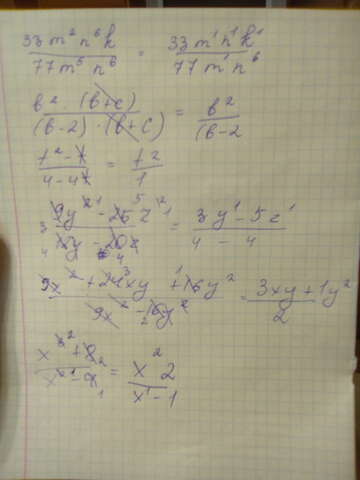 33m²n⁶k / 77m⁵n⁶ = 33m¹n¹k¹ / 77m¹n⁶
b²·(b+c) / (b-2)·(b+c) = b² / (b-2
t²-t / 4-4t = t² / 1
3 9y² ¹ - 25 ⁵ z² ¹ / 4 y - 20z 4 = 3y¹-5z¹ / 4 - 4
9x²+24³xy+¹16y² / 9x²-₂16y² = 3xy+1y² / 2
x³ ²+8 ₂ / x² ¹- 1 = x²2 / x¹-1